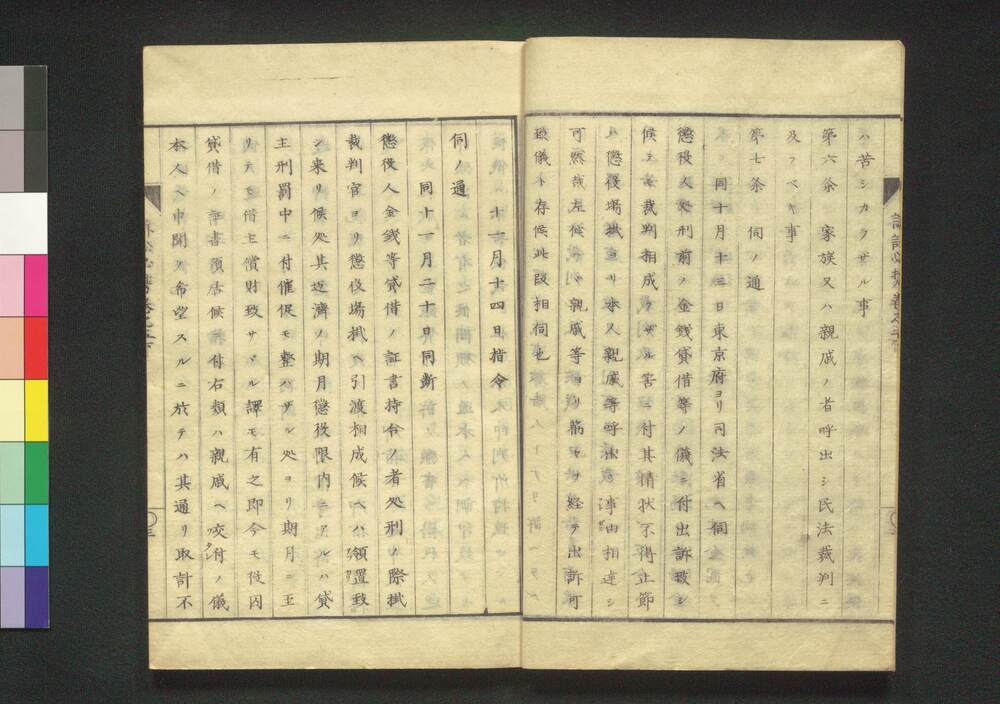 ハ苦シカラサル事
第六条　家族又ハ親戚ノ者呼出シ民法裁判ニ
及フベキ事
第七条　伺ノ通
同十月十三日東京府ヨリ司法省ヘ伺
懲役人処刑前ノ金銭貸借等ノ儀ニ付出訴致シ
候トモ裁判相成ラサル筈ニ付其情状不得止節
ハ懲役場掛ヨリ本人親戚等呼出シ事由相達シ
可然哉左候ハヽ親戚等ヨリ篤ト経テ出訴可
致儀ト存候此段相伺也
十一月十四日指令
伺ノ通
同十一月二十日同断
懲役人金銭等貸借ノ証書持合ノ者処刑ノ際掛
裁判官ヨリ懲役場掛ヘ引渡相成候ヘハ領置致
シ来リ候処其返済ノ期月懲役限内ニアルハ貸
主刑罰中ニ付催促モ整ハサル処ヨリ期月ニ至
リテモ借主償財致サヽル訳モ有之即今モ役囚
貸借ノ証書預居候ニ付右類ハ親戚ヘ交付ノ儀
本人ヘ申聞ケ希望スルニ於テハ其通リ取計不